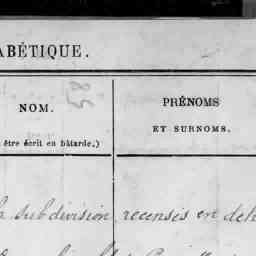 ABÉTIQUE.
58
NOM.
PRÉNOMS
ET SURNOMS.
être écrit en bâtarde.)
subdivision recensés en deh